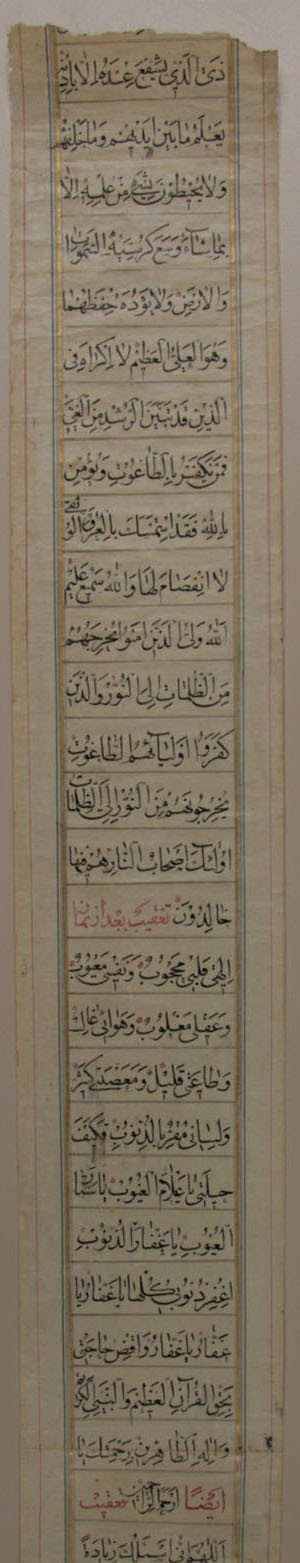 ذَى الَّذِي يَشْفَعُ عِنْدَهُ اِلَّا بِاِذْنِهِ
يَعْلَمُ مَا بَيْنَ اَيْدِيهِمْ وَمَا خَلْفَهُمْ
وَلَا يُحِيطُونَ بِشَيْءٍ مِنْ عِلْمِهِ اِلَّا
بِمَا شَاءَ وَسِعَ كُرْسِيُّهُ السَّمٰوَاتِ
وَالْاَرْضَ وَلَا يَؤُدُهُ حِفْظُهُمَا
وَهُوَ الْعَلِىُّ الْعَظِيمُ لَا اِكْرَاهَ فِى
الدِّينِ قَدْ تَبَيَّنَ الرُّشْدُ مِنَ الْغَىِّ
فَمَنْ يَكْفُرْ بِالطَّاغُوتِ وَيُؤْمِنْ
بِاللّٰهِ فَقَدِ اسْتَمْسَكَ بِالْعُرْوَةِ الْوُثْقٰى
لَا انْفِصَامَ لَهَا وَاللّٰهُ سَمِيعٌ عَلِيمٌ
اَللّٰهُ وَلِىُّ الَّذِينَ اٰمَنُوا يُخْرِجُهُمْ
مِنَ الظُّلُمَاتِ اِلَى النُّورِ وَالَّذِينَ
كَفَرُوا اَوْلِيَاؤُهُمُ الطَّاغُوتُ
يُخْرِجُونَهُمْ مِنَ النُّورِ اِلَى الظُّلُمَاتِ
اُولٰئِكَ اَصْحَابُ النَّارِ هُمْ فِيهَا
خَالِدُونَ تعقيب بعد از نماز
اِلٰهِى قَلْبِى مَحْجُوبٌ وَنَفْسِى مَعْيُوبٌ
وَعَقْلِى مَغْلُوبٌ وَهَوَائِى غَالِبٌ
وَطَاعَتِى قَلِيلٌ وَمَعْصِيَتِى كَثِيرٌ
وَلِسَانِى مُقِرٌّ بِالذُّنُوبِ فَكَيْفَ
حِيلَتِى يَا عَلَّامَ الْغُيُوبِ يَا سَتَّارَ
الْعُيُوبِ يَا غَفَّارَ الذُّنُوبِ
اِغْفِرْ ذُنُوبِى كُلَّهَا يَا غَفَّارُ يَا
غَفَّارُ يَا غَفَّارُ وَاقْضِ حَاجَتِى
بِحَقِّ الْقُرْاٰنِ الْعَظِيمِ وَالنَّبِىِّ الْكَرِيمِ
وَاٰلِهِ الطَّاهِرِينَ بِرَحْمَتِكَ يَا
اَرْحَمَ الرَّاحِمِينَ ايضًا تعقيب
اَللّٰهُمَّ اِنِّى اَسْئَلُكَ زِيَادَةً